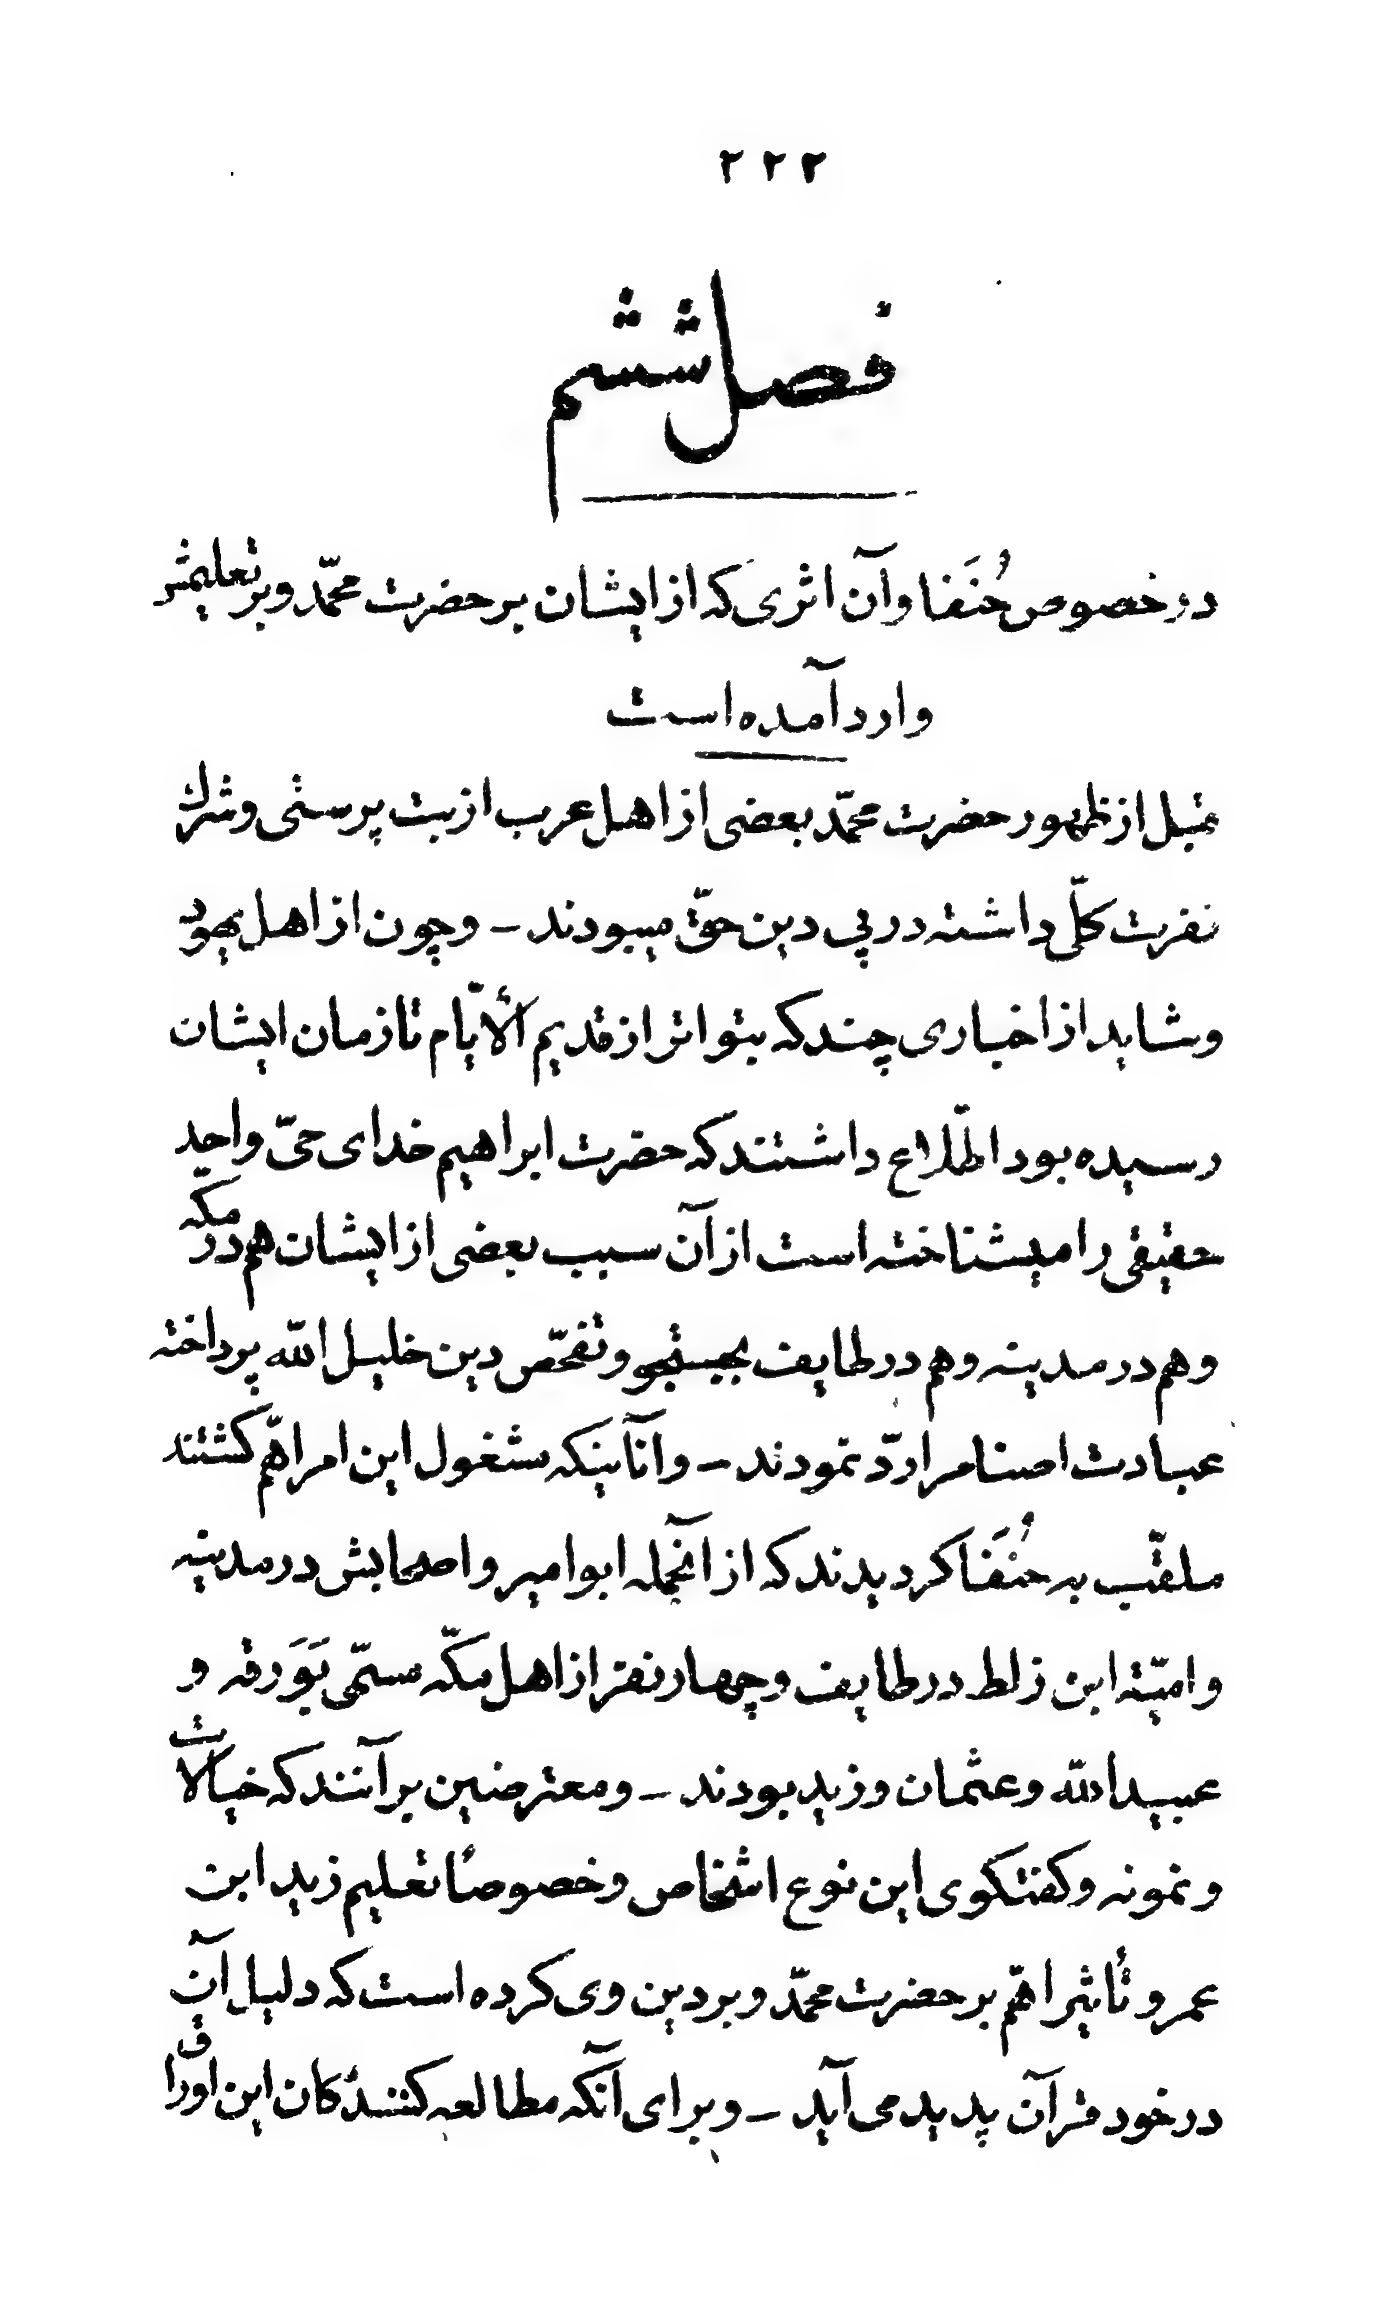 ٢٢٢
فصل ششم
در خصوص حُنَفا و آن اثری که از ایشان بر حضرت محمّد و بر تعلیمش
وارد آمده است
قبل از ظهور حضرت محمّد بعضی از اهل عرب از بت پرستی و شرك
نفرت کلّی داشته در پی دین حقّ میبودند – و چون از اهل یهود
و شاید از اخباری چند که بتواتر از قدیم الأیّام تا زمان ایشان
رسیده بود اطّلاع داشتند که حضرت ابراهیم خدای حیّ واحد
حقیقی را میشناخته است از آن سبب بعضی از ایشان هم در مکّه
و هم در مدینه و هم در طایف بجستجو و تفحّص دین خلیل اللّه پرداخته
عبادت اصنام را ردّ نمودند – و آنانیکه مشغول این امر اهمّ کشتند
ملقّب به حُنَفَا کردیدند که از آنجمله ابو امیر و اصحابش در مدینه
و امیّه ابن زلط در طایف و چهار نفر از اهل مکّه مسمّی بَوَرقه و
عبیداللّه و عثمان و زید بودند – و معترضین بر آنند که خیالات
و نمونه و کفتکوی این نوع اشخاص و خصوصاً تعلیم زید ابن
عمرو تأثیر اهمّ بر حضرت محمّد و بر دین وی کرده است که دلیل آن
در خود قرآن پدید می آید – و برای آنکه مطالعه کنندکان این اوراق